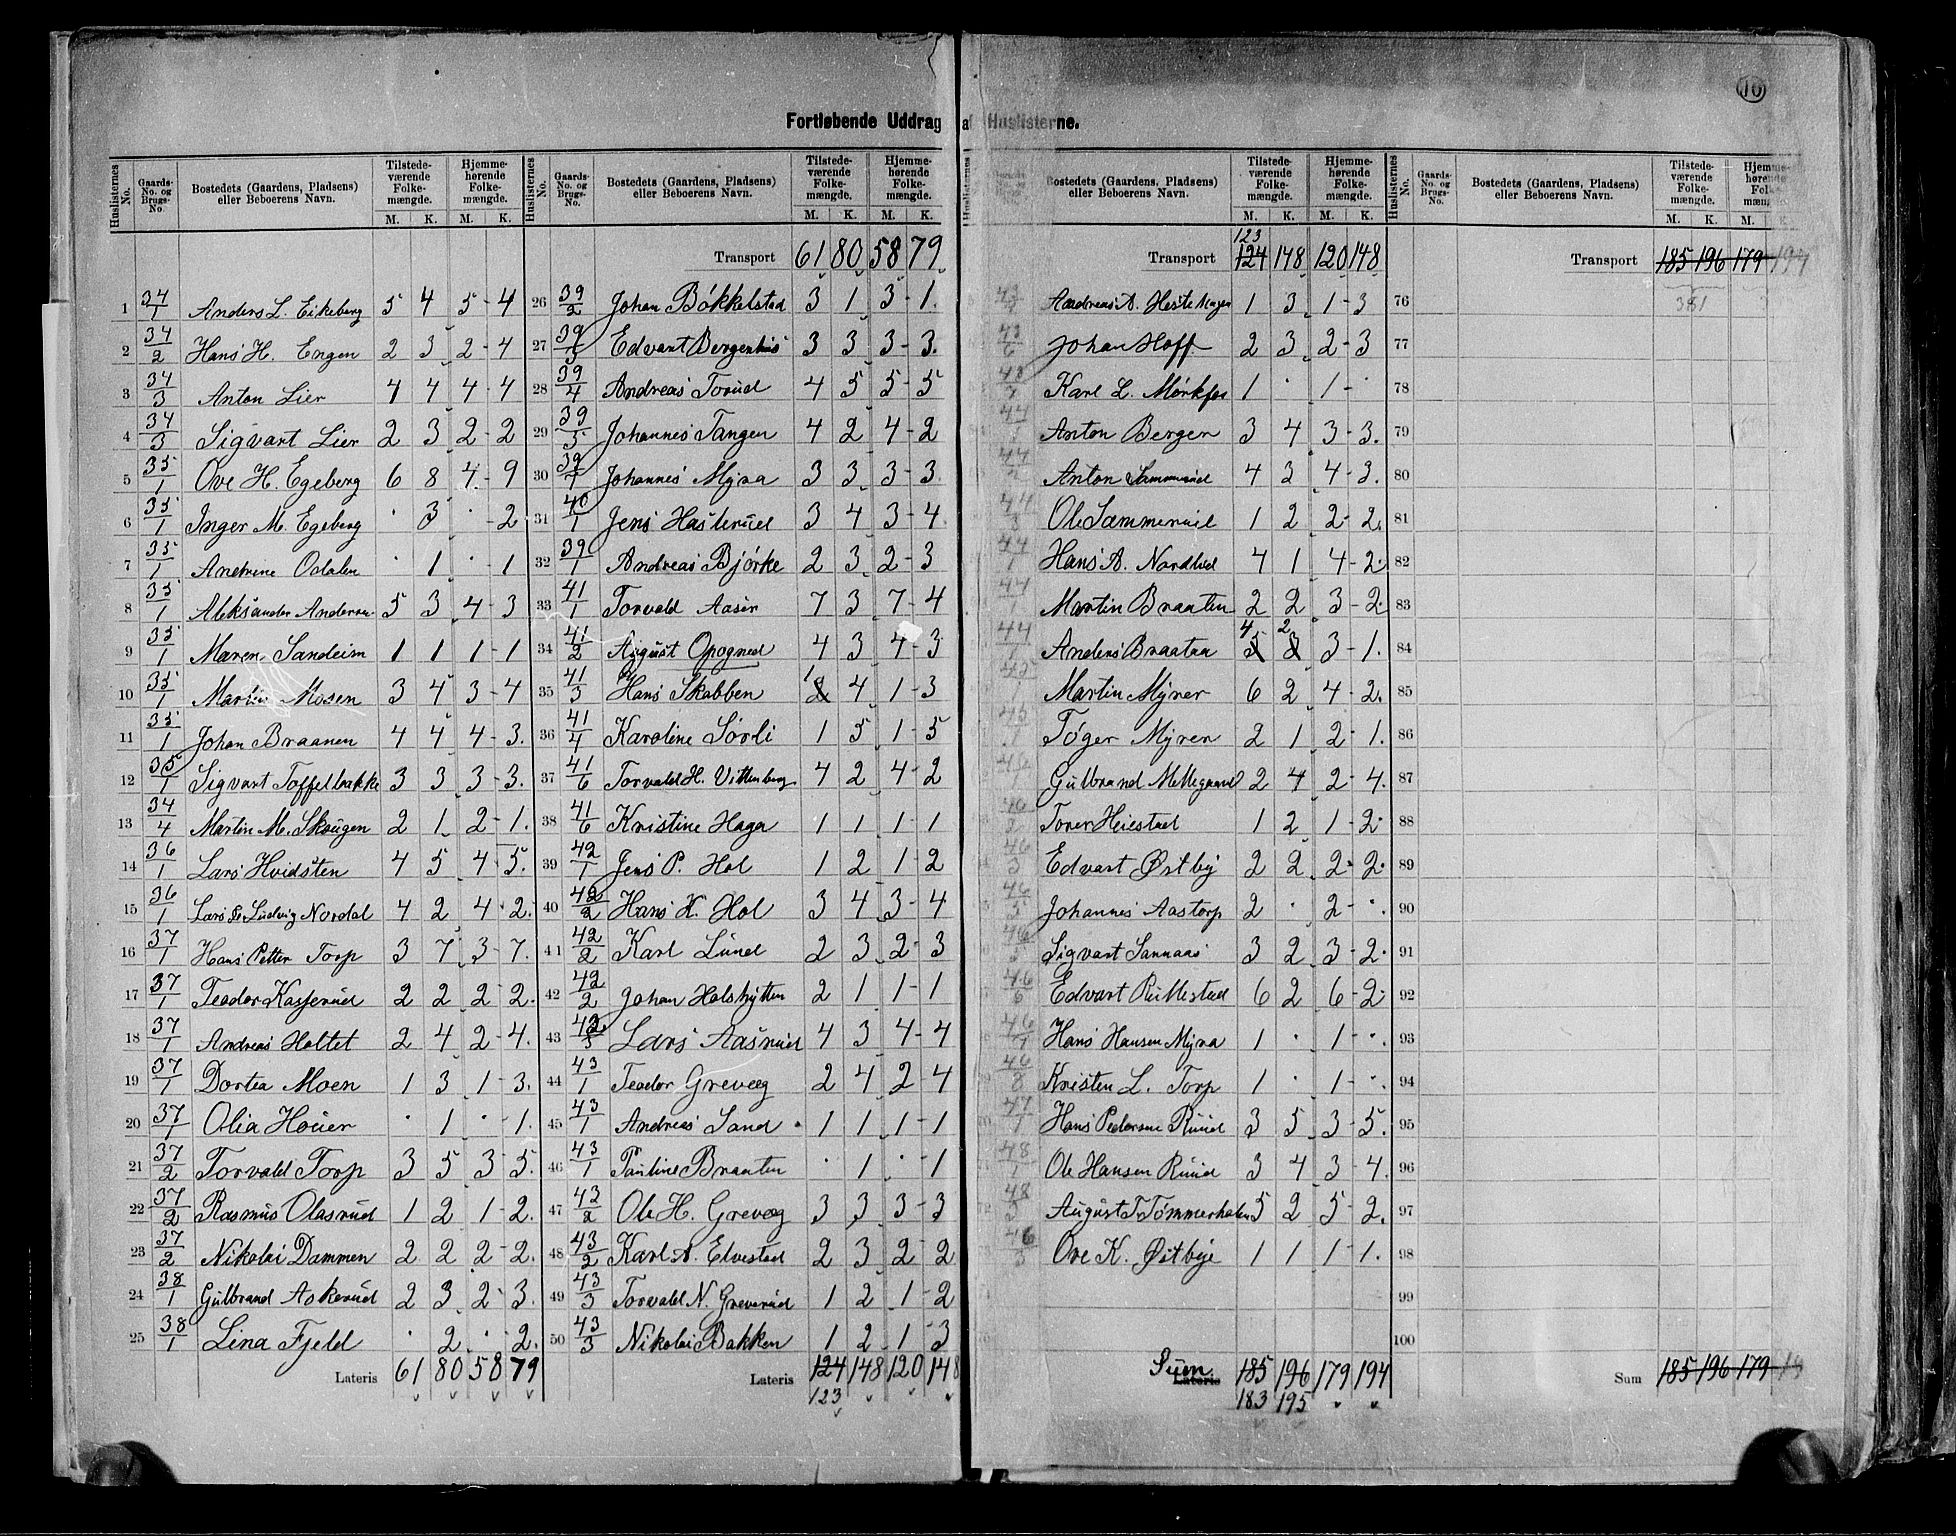 10
Fortløbende Uddrag af Huslisterne.
Huslisternes No. Gaards-No. og Brugs-No. Bostedets (Gaardens, Pladsens) eller Beboerens Navn. Tilstedeværende Folkemængde. M. K. Hjemmehørende Folkemængde. M. K.
1 34/1 Anders L. Eikeberg 5 4 5 - 4
2 34/2 Hans H. Engen 2 3 2 - 4
3 34/3 Anton Lier 4 4 4 - 4
4 34/3 Sigvart Lier 2 3 2 - 2
5 35/1 Ove H. Egeberg 6 8 7 - 9
6 35/1 Inger M. Egeberg · 3 · - 2
7 35/1 Anetrene Odalen · 1 · - 1
8 35/1 Aleksander Andersen 5 3 4 - 3
9 35/1 Maren Sandeim 1 1 1 - 1
10 35/1 Martin Mosen 3 4 3 - 4
11 35/1 Johan Braanen 4 4 4 - 3.
12 35/1 Sigvart Toffelbakke 3 3 3 - 3.
13 34/4 Martin M. Skougen 2 1 2 - 1.
14 36/1 Lars Hvidsten 4 5 4 - 5.
15 36/1 Lars Ludvig Nordal 4 2 4 - 2.
16 37/1 Hans Petter Torp 3 7 3 - 7.
17 37/1 Teodor Kasserud 2 2 2 - 2.
18 37/1 Andreas Holtet 2 4 2 - 4.
19 37/1 Dortea Moen 1 3 1 - 3.
20 37/1 Olia Houer · 1 · - 1.
21 37/2 Torvald Torp 3 5 3 5.
22 37/2 Rasmus Olasrud 1 2 1 - 2.
23 37/2 Nikolai Dammen 2 2 2 - 2.
24 38/1 Gulbrand Askerud 2 3 2 - 3.
25 38/1 Lina Fjeld · 2 · 2.
Lateris 61 80 58 79
Huslisternes No. Gaards-No. og Brugs-No. Bostedets (Gaardens, Pladsens) eller Beboerens Navn. Tilstedeværende Folkemængde. M. K. Hjemmehørende Folkemængde. M. K.
Transport 61 80 58 79
26 39/2 Johan Bökkelstad 3 1 3 - 1.
27 39/3 Edvart Bergenhus 3 3 3 - 3.
28 39/4 Andreas Torud 4 5 5 - 5
29 39/5 Johannes Tangen 4 2 4 - 2
30 39/7 Johannes Myra 3 3 3 - 3
31 40/1 Jens Hasterud 3 4 3 - 4.
32 39/1 Andreas Bjørke 2 3 2 - 3
33 41/1 Torvald Aaser 7 3 7 - 4
34 41/2 August Opogned 4 3 4 - 3
35 41/3 Hans Skabben 1 4 1 - 3
36 41/4 Karoline Sörli 1 5 1 - 5
37 41/6 Torvald H. Vittenberg 4 2 4 - 2
38 41/6 Kristine Haga 1 1 1 1
39 42/1 Jens P. Hol 1 2 1 - 2
40 42/2 Hans K. Hol 3 4 3 - 4
41 42/2 Karl Lund 2 3 2 - 3
42 42/2 Johan Holshytten 2 1 1 - 1
43 42/3 Lars Aasrud 4 3 4 - 4
44 43/1 Teodor Greveg 2 4 2 4
45 43/1 Andreas Sand 1 1 1 - 1
46 43/1 Pauline Braaten · 1 · - 1
47 43/2 Ole H. Greveg 3 3 3 - 3
48 43/2 Karl A. Elvestad 2 3 2 - 2
49 43/3 Torvald N. Greverud 1 2 1 - 2
50 43/3 Nikolai Bakken 1 2 1 3
Lateris 124 148 120 148
123
Bostedets (Gaardens, Pladsens) eller Beboerens Navn. Tilstedeværende Folkemængde. M. K. Hjemmehørende Folkemængde. M. K.
123
Transport 124 148 120 148
Andreas A. Hestehagen 1 3 1 - 3
Johan Hoff 2 3 2 - 3
Karl L. Mørkfos 1 · 1 -
Anton Berger 3 4 3 - 3.
Anton Sammerud 4 3 4 - 3.
Ole Sammerud 1 2 2 - 2.
Hans A. Nordlid 4 1 4 - 2.
Martin Braaten 2 2 3 - 2.
4 2
Anders Braataa 5 3 3 - 1.
Martin Myrer 6 2 4 - 2.
Töger Myren 2 1 2 - 1.
Gulbrand Mellegaard 2 4 2 - 4.
Torer Heiestad 1 2 1 - 2.
Edvart Østby 2 2 2 - 2.
Johannes Aastorp 2 · 2 - ·.
Sigvart Sannaas 3 2 3 - 2.
Edvart Rullestad 6 2 6 - 2.
Hans Hansen Myra 1 · 1 - ·.
Kristen L. Torp 1 · 1 - ·.
Hans Pedersen Ruud 3 5 3 - 5.
Ole Hansen Ruud 3 4 3 - 4.
August T. Tömmerholen 5 2 5 - 2.
Ove K. Østbye 1 1 1 - 1.
Sum Lateris 185 196 179 194
183 195
Huslisternes No. Gaards-No. og Brugs-No. Bostedets (Gaardens, Pladsens) eller Beboerens Navn. Tilstedeværende Folkemængde. M. K. Hjemmehørende Folkemængde. M. K.
Transport 185 196 179 194
76 381
77
78
79
80
81
82
83
84
85
86
87
88
89
90
91
92
93
94
95
96
97
98
99
100
Sum 185 196 179